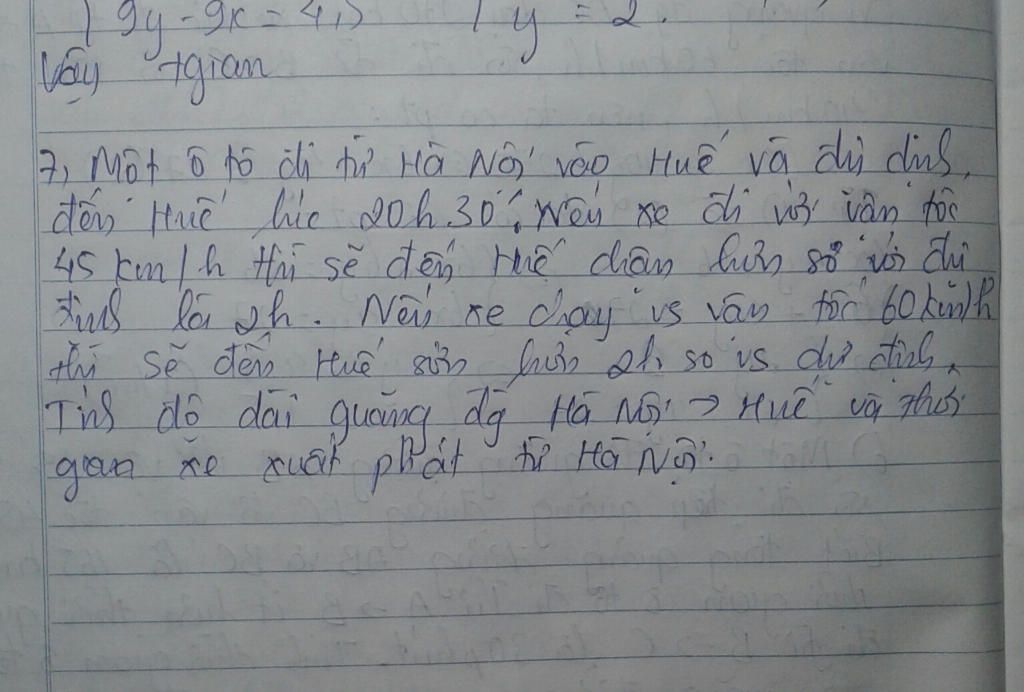 9y - 9x = 4,5 y = 2.
Vậy tgian
7, Một ô tô đi từ Hà Nội vào Huế và dự định
đến Huế lúc 20h30'. Nếu xe đi với vận tốc
45 km/h thì sẽ đến Huế chậm hơn so với dự
định là 2h. Nếu xe chạy vs vận tốc 60km/h
thì sẽ đến Huế sớm hơn 2h so vs dự định.
Tính độ dài quãng đg Hà Nội → Huế và thời
gian xe xuất phát từ Hà Nội.